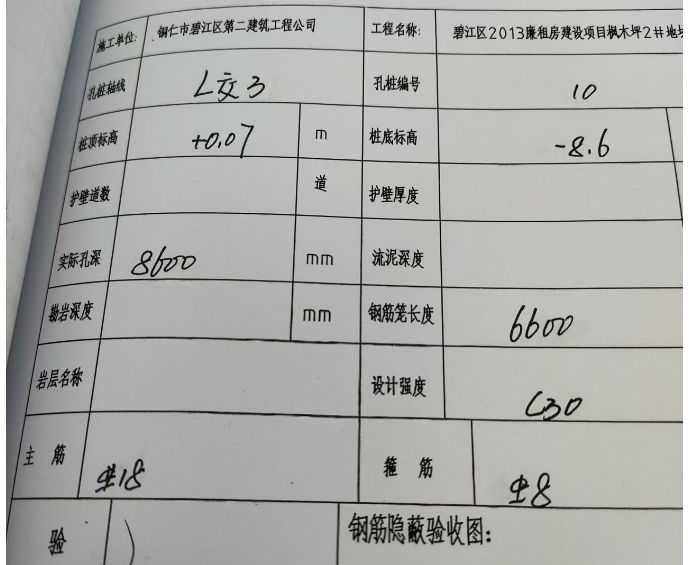 施工单位: 铜仁市碧江区第二建筑工程公司 工程名称: 碧江区2013廉租房建设项目枫木坪2#地块
孔桩轴线 L交3 孔桩编号 10
桩顶标高 +0.07 m 桩底标高 -8.6
护壁道数 道 护壁厚度
实际孔深 8600 mm 流泥深度
勘岩深度 mm 钢筋笼长度 6600
岩层名称 设计强度 C30
主 筋 ⌀18 箍 筋 ⌀8
验 钢筋隐蔽验收图: